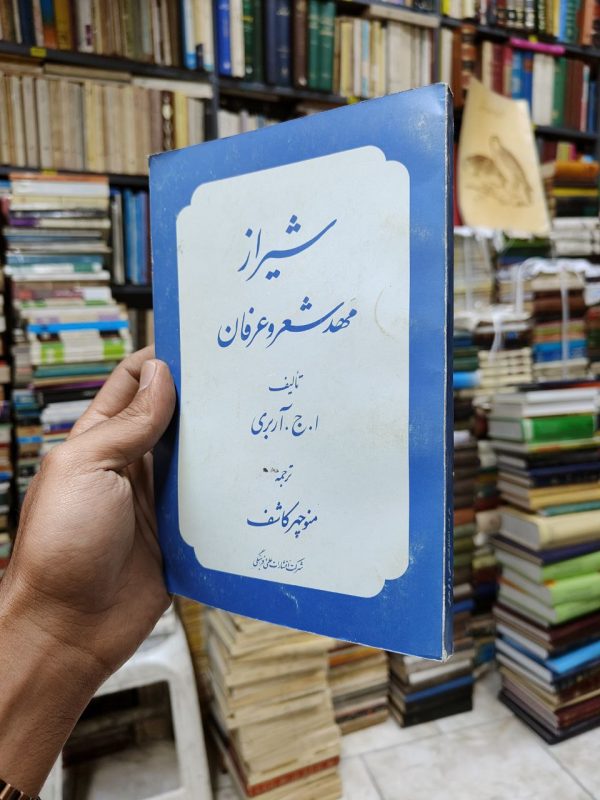 شیراز
مهد شعر و عرفان
تألیف
ا. ج. آربری
ترجمه
منوچهر کاشف
شرکت انتشارات علمی و فرهنگی